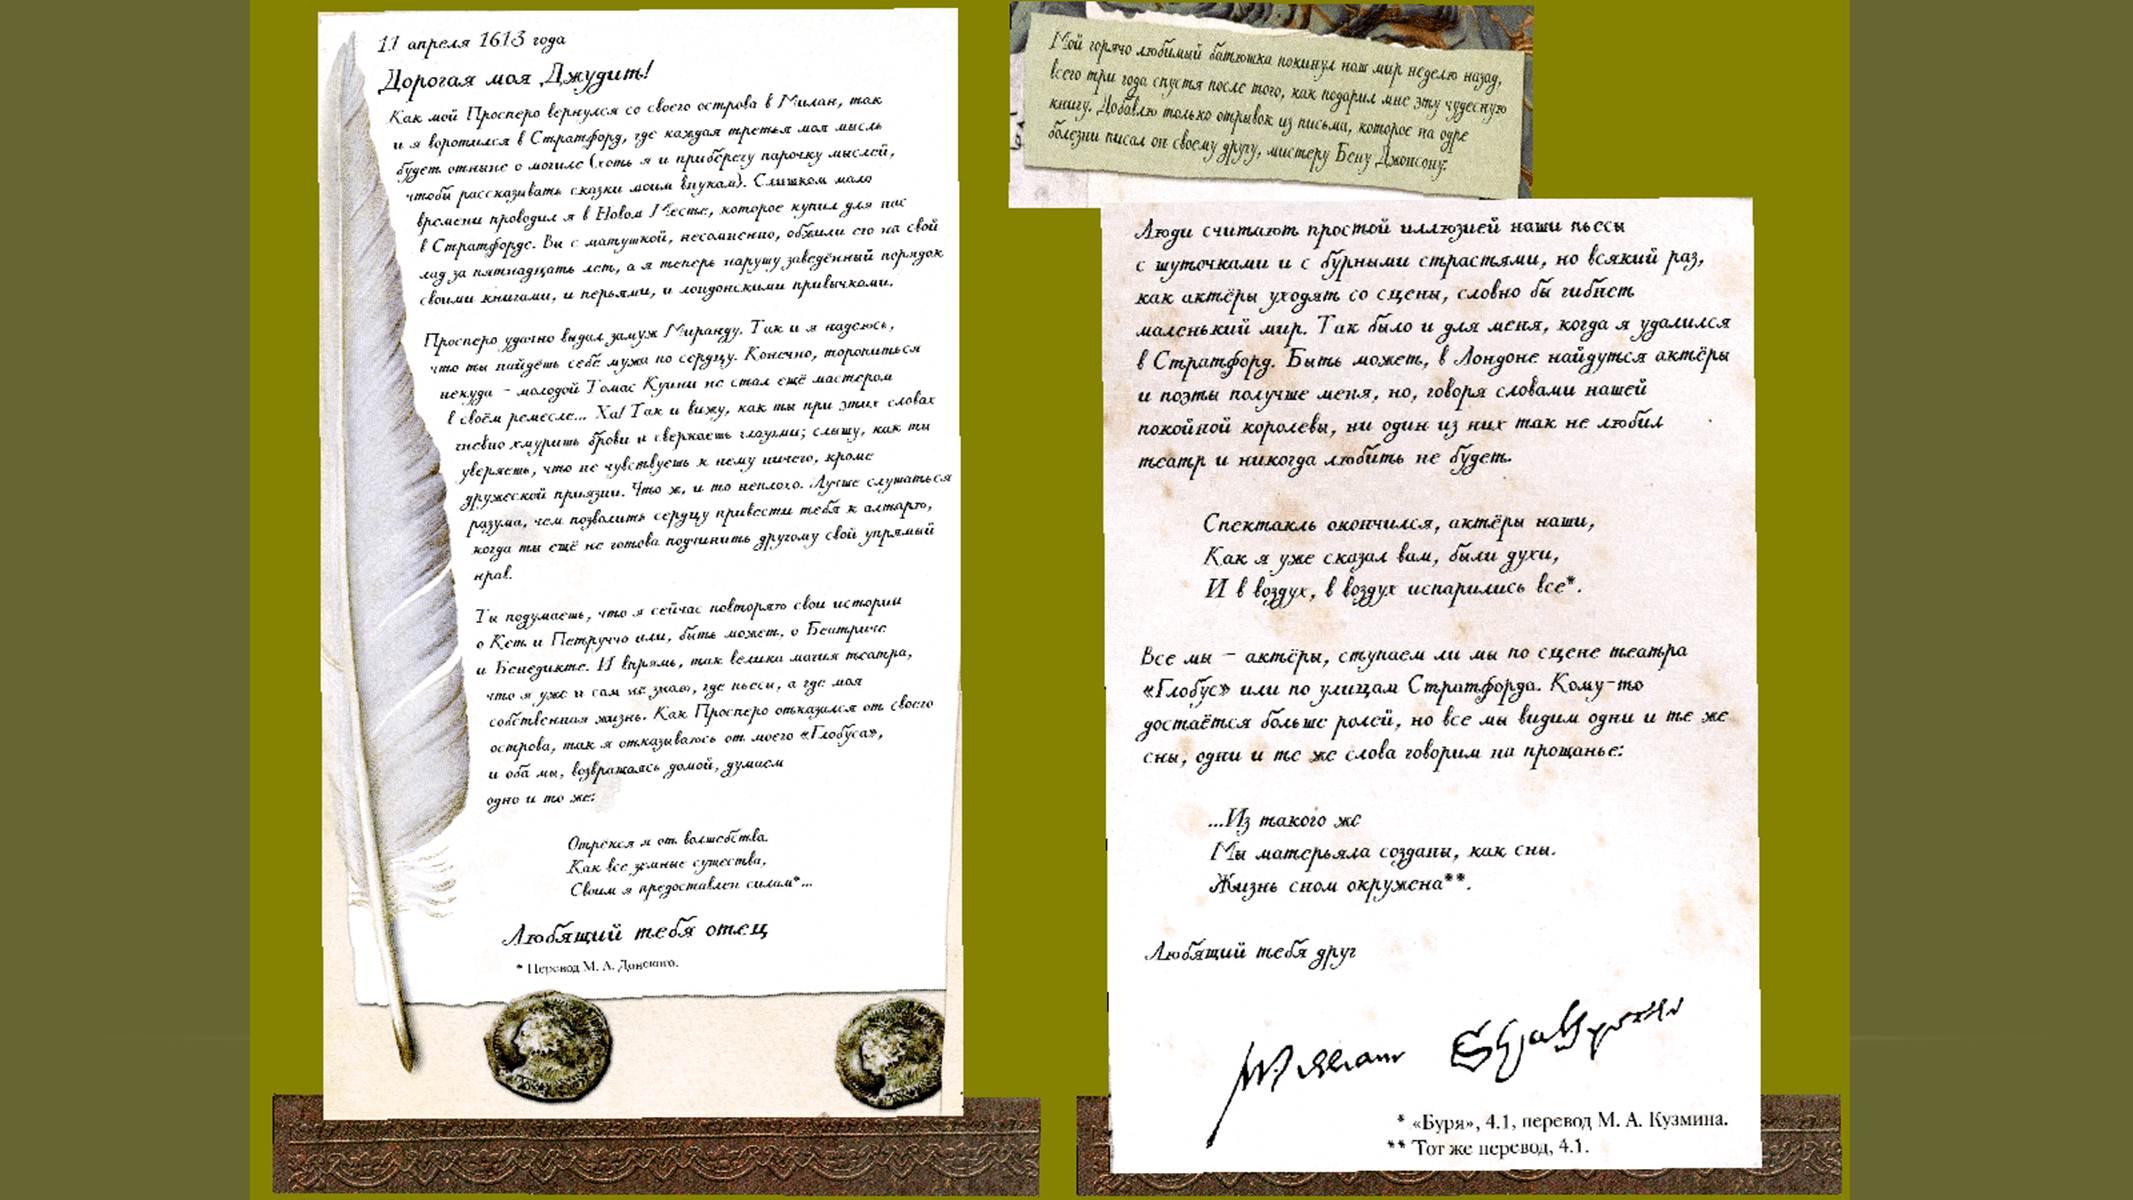 11 апреля 1613 года
Дорогая моя Джудит!
Как мой Просперо вернулся со своего острова в Милан, так
и я воротился в Стратфорд, где каждая третья моя мысль
будет отныне о могиле (хоть я и приберегу парочку мыслей,
чтобы рассказывать сказки моим внукам). Слишком мало
времени проводил я в Новом Месте, которое купил для нас
в Стратфорде. Вы с матушкой, несомненно, обжили его на свой
лад за пятнадцать лет, а я теперь нарушу заведённый порядок
своими книгами, и перьями, и лондонскими привычками.
Просперо удачно выдал замуж Миранду. Так и я надеюсь,
что ты найдёшь себе мужа по сердцу. Конечно, торопиться
некуда – молодой Томас Куини не стал ещё мастером
в своём ремесле... Ха! Так и вижу, как ты при этих словах
гневно хмуришь брови и сверкаешь глазами; слышу, как ты
уверяешь, что не чувствуешь к нему ничего, кроме
дружеской приязни. Что ж, и то неплохо. Лучше слушаться
разума, чем позволить сердцу привести тебя к алтарю,
когда ты ещё не готова подчинить другому свой упрямый
нрав.
Ты подумаешь, что я сейчас повторяю свои истории
о Кет и Петруччо или, быть может, о Беатриче
и Бенедикте. И впрямь, так велика магия театра,
что я уже и сам не знаю, где пьесы, а где моя
собственная жизнь. Как Просперо отказался от своего
острова, так я отказываюсь от моего «Глобуса»,
и оба мы, возвращаясь домой, думаем
одно и то же:
Отрёкся я от волшебства.
Как все земные существа,
Своим я предоставлен силам*...
Любящий тебя отец
* Перевод М. А. Донского.
Мой горячо любимый батюшка покинул наш мир неделю назад,
всего три года спустя после того, как подарил мне эту чудесную
книгу. Добавлю только отрывок из письма, которое на одре
болезни писал он своему другу, мистеру Бену Джонсону.
Люди считают простой иллюзией наши пьесы
с шуточками и с бурными страстями, но всякий раз,
как актёры уходят со сцены, словно бы гибнет
маленький мир. Так было и для меня, когда я удалился
в Стратфорд. Быть может, в Лондоне найдутся актёры
и поэты получше меня, но, говоря словами нашей
покойной королевы, ни один из них так не любил
театр и никогда любить не будет.
Спектакль окончился, актёры наши,
Как я уже сказал вам, были духи,
И в воздух, в воздух испарились все*.
Все мы – актёры, ступаем ли мы по сцене театра
«Глобус» или по улицам Стратфорда. Кому-то
достаётся больше ролей, но все мы видим одни и те же
сны, одни и те же слова говорим на прощанье:
...Из такого же
Мы матерьяла созданы, как сны.
Жизнь сном окружена**.
Любящий тебя друг
William Shakspeare
* «Буря», 4.1, перевод М. А. Кузмина.
** Тот же перевод, 4.1.